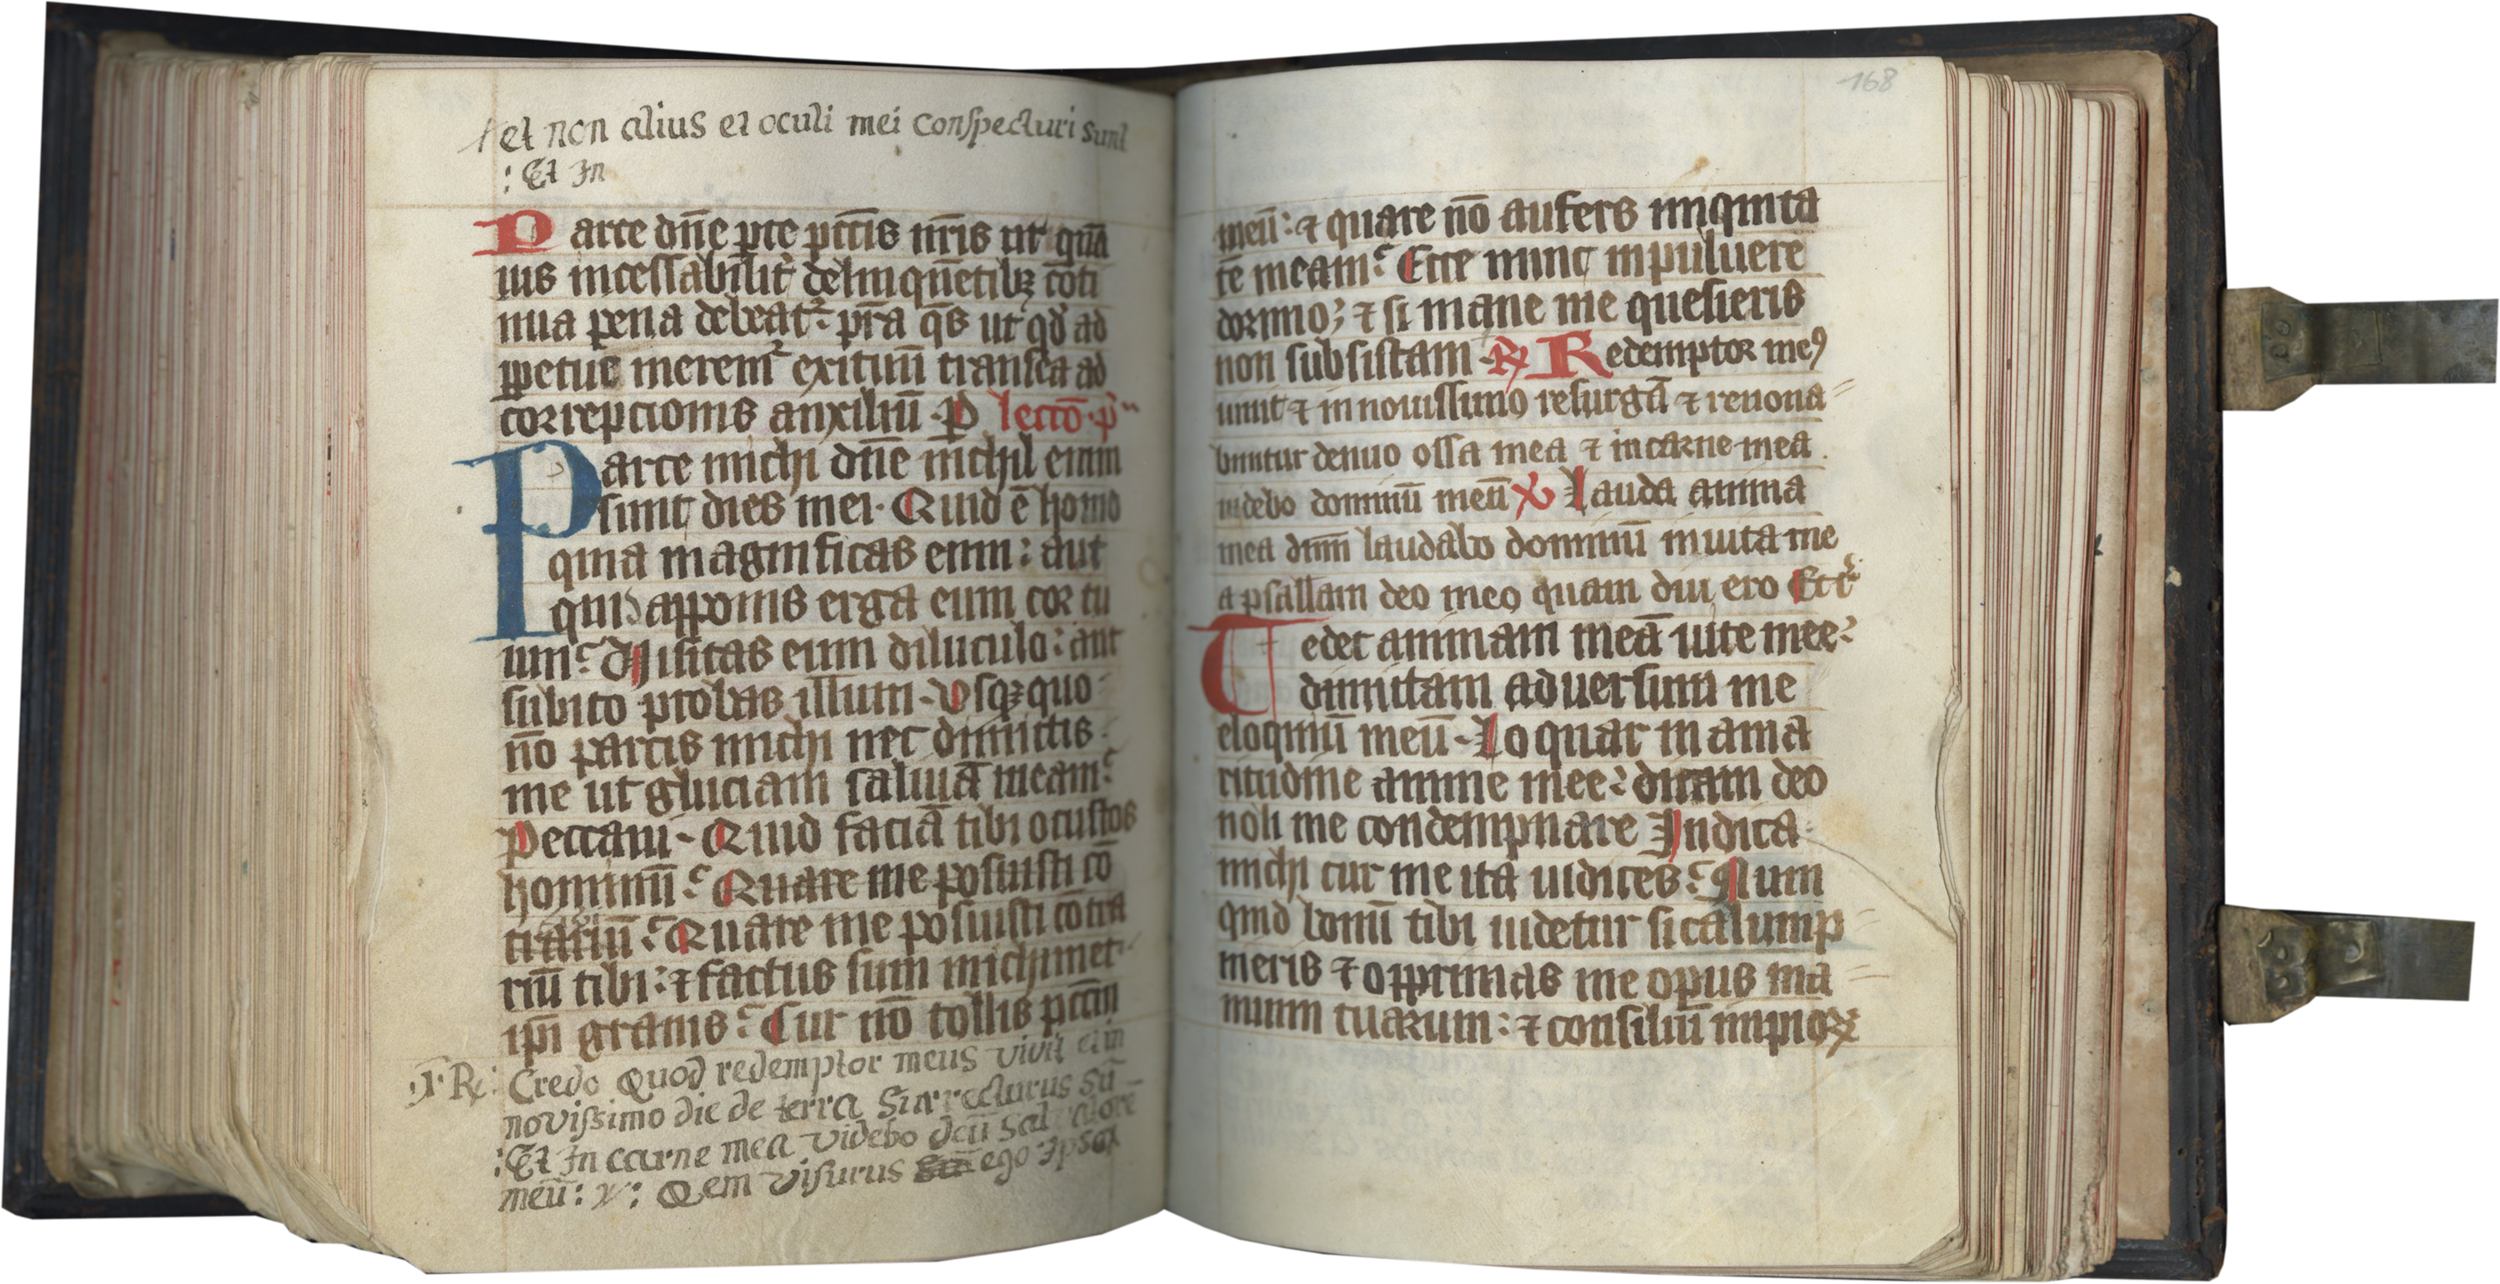 et non alius et oculi mei conspecturi sunt
: Et In
Parce dn̄e p̱ce pcc̄is nr̄is ut quā
uis incessabilit᷑ delinquētibꝫ cōti
nua pena debeat᷑: pr̄a q̄s ut qd̓ ad
ꝑpetue meremᷣ exitiuū transea ad
correpcionis auxiliū · P lectō · p̓ᵃ
Parce michi dn̄e nichil enim
sunt dies mei · Quid ē homo
quia magnificas eum: aut
quid apponis erga eum cor tu
um: Visitas eum diluculo: aut
subito probas illum · Vsqꝫ quo
nō parcis michi nec dimittis
me ut gluciam saliuā meam:
Peccaui · Quid faciā tibi o custos
hominū: Quare me posuisti cō
trariū: Quare me posuisti cōtra
riū tibi: ⁊ factus sum michimet
ip̄i grauis: Cur nō tollis pcc̄m
·I· R⁊: Credo Quod redemptor meus vivit et in
novissimo die de terra Surrecturus Sū
: Et In carne mea videbo deū Salvatore
meū: V: Qem visurus Sū ego Ipse
168
meū: ⁊ quare nō aufers iniquita
tē meam: Ecce nunc in puluere
dormio; ⁊ si mane me quesieris
non subsistam · R⁊ Redemptor meꝰ
uiuit ⁊ in nouissimo resurgā ⁊ renoua
buntur denuo ossa mea ⁊ in carne mea
uidebo dominū meū V Lauda anima
mea dnm̄ laudabo dominū in uita me
a psallam deo meo quam diu ero Et ī
Tedet animam meā uite mee:
dimittam aduersum me
eloquiū meū · Loquar in ama
ritudine anime mee: dicam deo
noli me condempnare Indica
michi cur me ita iudices: Num
quid bonū tibi uidetur si calump
nieris ⁊ opprimas me opus ma
nuum tuarum: ⁊ consiliū impioꝝ